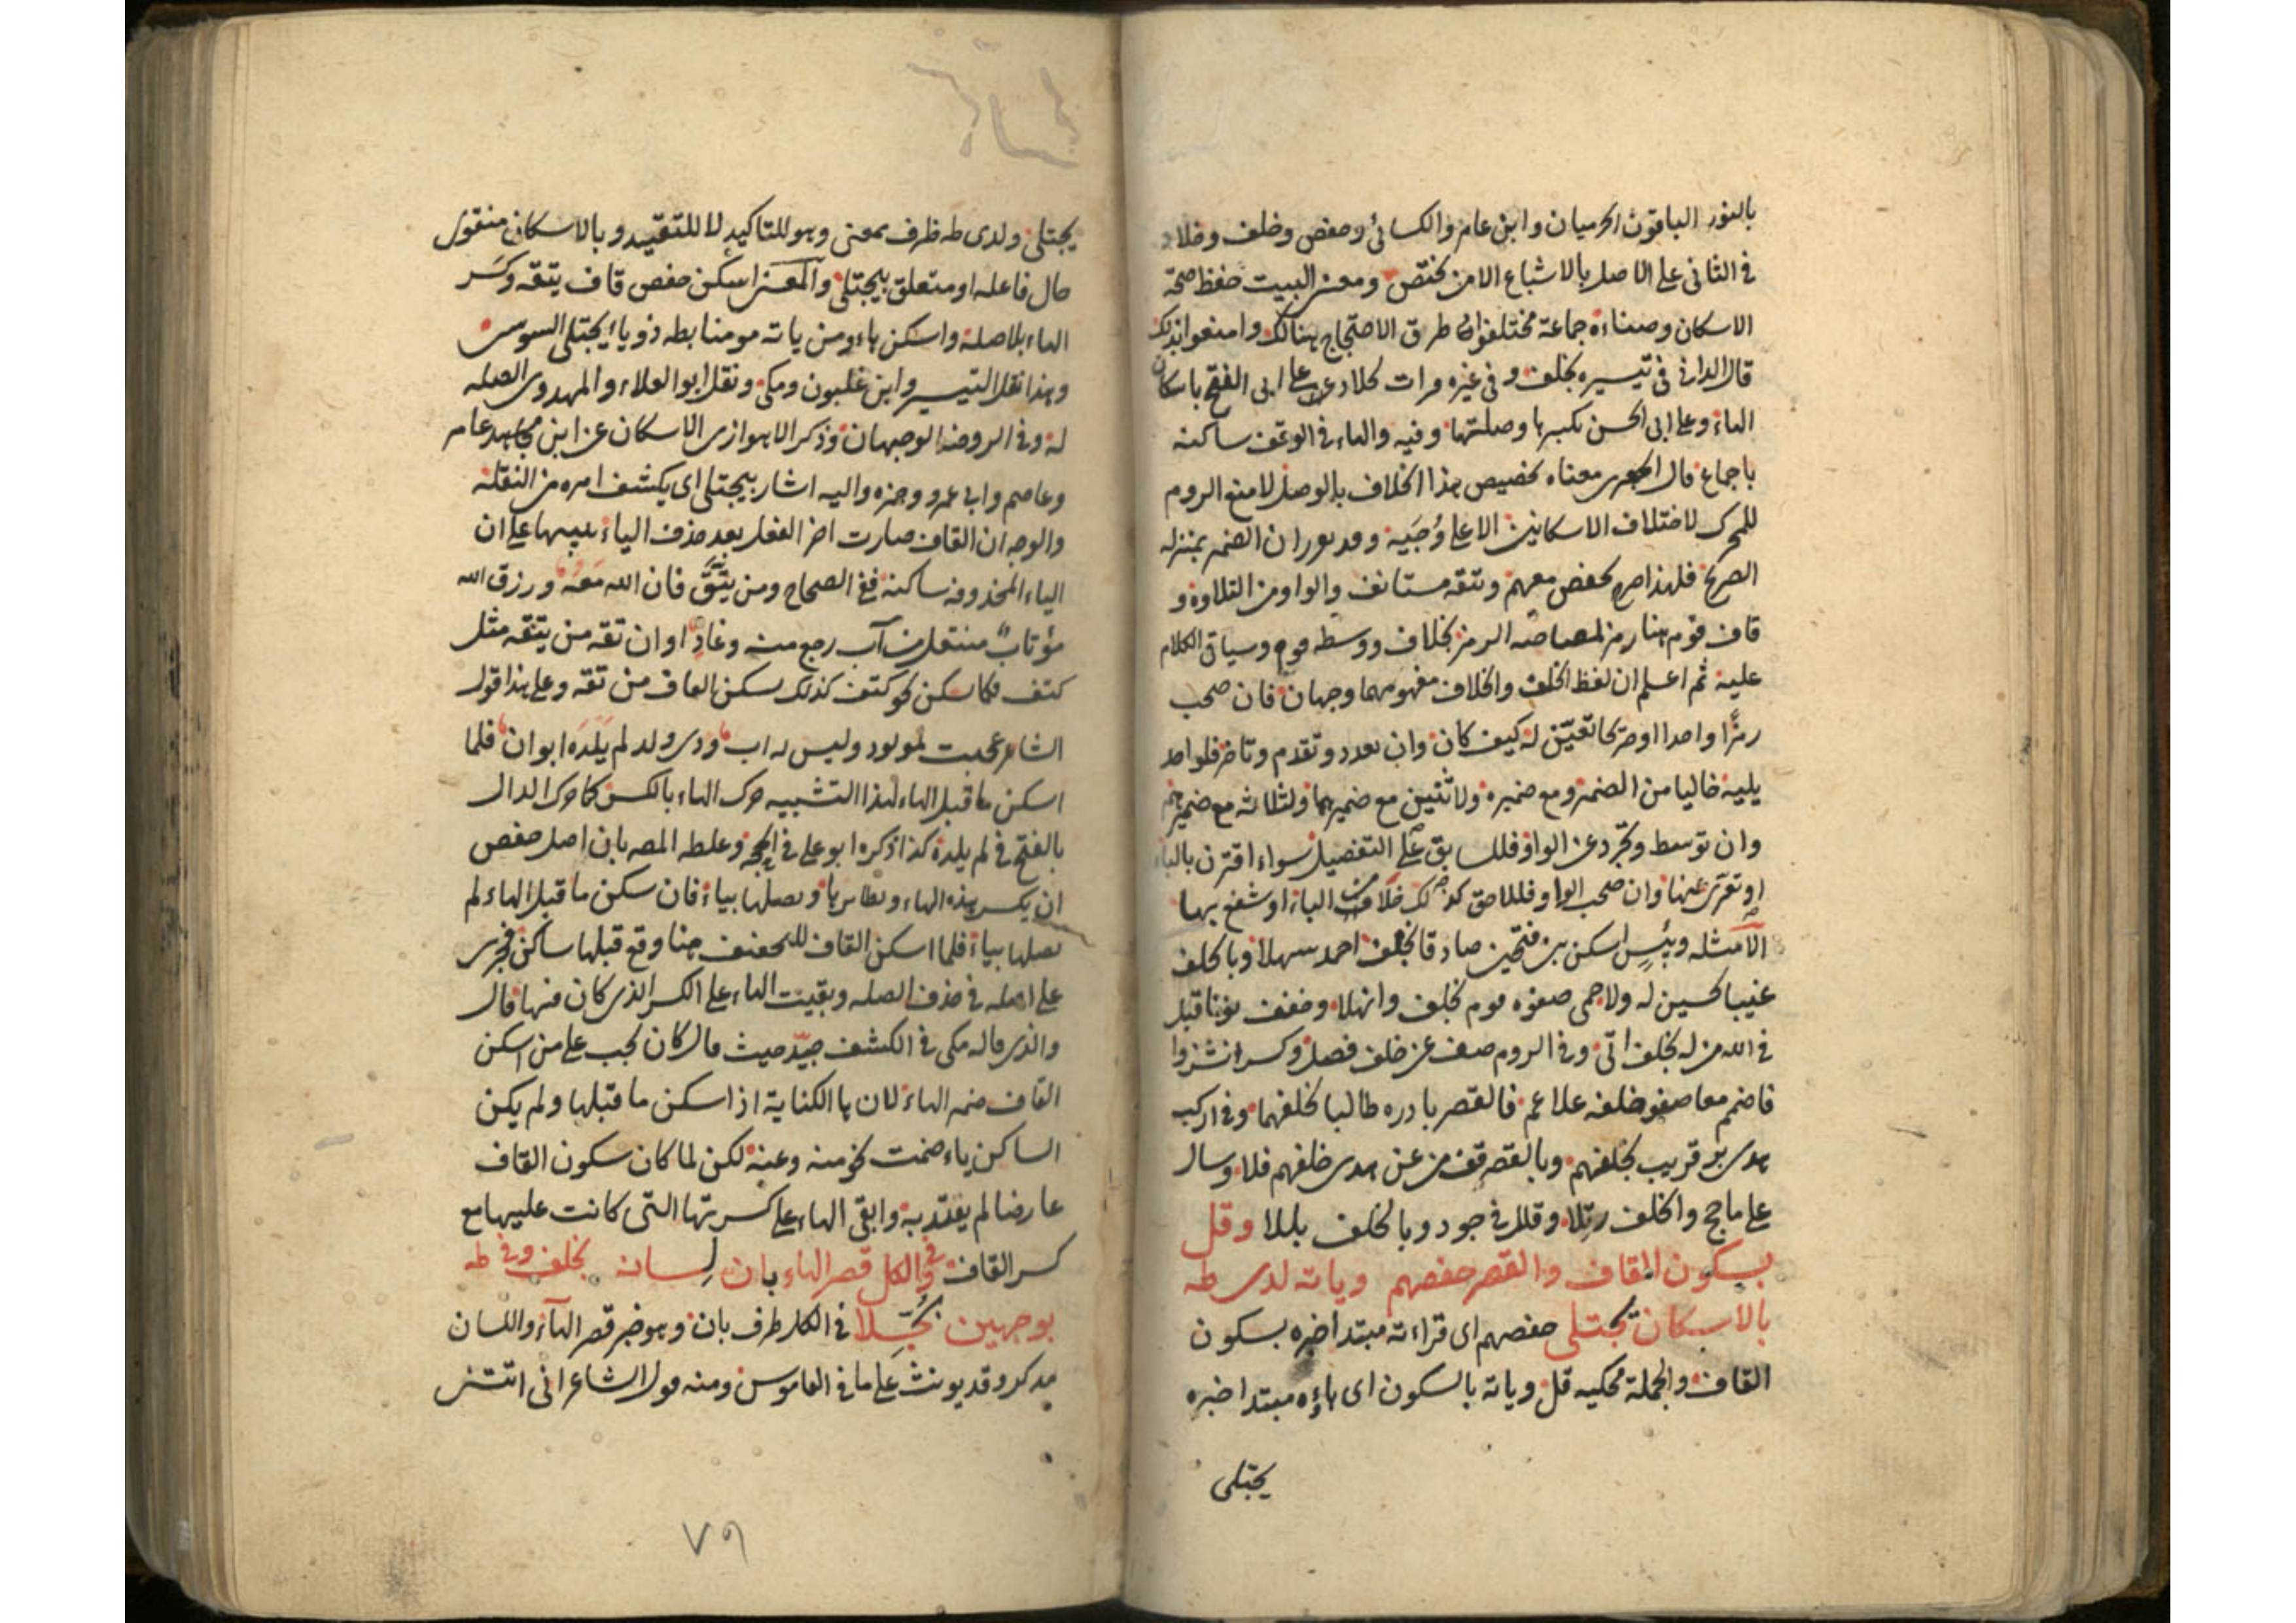 بالنور الباقون الحرميان وابن عامر والكسائى وحفص وخلف وخلاد
فى الثانى على الاصل بالاشباع الا من يختص ومعنى البيت حفظ صحة
الاسكان وصفاءه جماعة مختلفوا طرق الاحتجاج هنالك وامنعوا بذلك
قال الدانى فى تيسيره بخلف وفى غيره قرات لخلاد على ابى الفتح باسكان
الهاء وعلى ابى الحسن بكسرها وصلتها وفيه والهاء فى الوقف ساكنه
باجماع قال الجعبرى معناه تخصيص هذا الخلاف بالوصل لا منع الروم
للمحرك لاختلاف الاسكانين الا على وُجَيه وقد ان الضمير بمنزلة
الصريح فلهذا صرح بحفص معهم ويتقه مستانف والواو من التلاوة و
قاف قوم هنا رمز الرمز بخلاف ووسطه قوم وسياتى الكلام
عليه ثم اعلم ان لفظ الخلف والخلاف مفهومهما وجهان فان صحب
رمزًا واحدا او صريحا تعيّن له كيف كان وان تعدد وتقدم وتاخر فلواحد
يليه خاليا من الضمير ومع ضميره ولاثنين مع ضميرهما ولثلاثه مع ضميرهم
وان توسط وتجرد عن الواو فللسابق على التفصيل سواء اقترن بالباء
او تعرّى عنها وان صحب الواو فللاحق كذلك خلا من الباء او شفع بها
الامثله وبئس اسكن بين فتحين صادقا بخلف احمد سهلا وبالخلف
غيبا كحسين له ولا حمى صفوه قوم بخلف وانهلا وضعف نونا قبل
فى الله من له بخلف اتى وفى الروم صف عن خلف فصل وكسر انشزوا
فاضمم معا صفو خلفه علا عم فالقصر بادره طالبا بخلفهما وفى اركب
هدى بر قريب بخلفهم وبالقصر قف من عن هدى خلفهم فلا وسال
على ما حج والخلف رتلا وقلل فى جود وبالخلف بللا وقل
بسكون القاف والقصر حفصهم وياته لدى طه
بالاسكان يجتلى حفصهم اى قراءته مبتدا خبره بسكون
القاف والجملة محكيه قل وياته بالسكون اى هاؤه مبتدا خبره
يجتلى
يجتلى ولدى طه ظرف بمعنى وهو للتاكيد لا للتقييد وبالاسكان منقول
حال فاعله او متعلق بيجتلى والمعنى اسكن حفص قاف يتقه وكسر
الهاء بلا صلة واسكن هاء ومن ياته مومنا بطه ذو ياء يجتلى السوسى
وهذا نقل التيسير وابن غلبون ومكى ونقل ابو العلاء والمهدوى الصله
له وفى الروضه الوجهان وذكر الاهوازى الاسكان عن ابن مجاهد عامر
وعاصم وابى عمرو وحمزه واليه اشار بيجتلى اى يكشف امره من النقلة
والوجه ان القاف صارت اخر الفعل بعد حذف الياء تنبيها على ان
الياء المحذوفه ساكنه ففى الصحاح ومن يتّقْ فان الله معه ورزق الله
مؤتاب منتقل من آب رجع منه وغادِ او ان تقه من يتقه مثل
كتف فكما سكن نحو كتف كذلك سكن القاف من تقه وعلى هذا قول
الشاعر عجبت لمولود وليس له اب وذى ولد لم يلده ابوان فلما
اسكن ما قبل الهاء لهذا التشبيه حرك الهاء بالكسر كما حرك الدال
بالفتح فى لم يلده كذا ذكره ابو على فى الحجه وغلطه المصه بان اصل حفص
ان يكسر هذه الهاء ونظايرها ويصلها بياء فان سكن ما قبل الهاء لم
يصلها بياء فلما اسكن القاف للتخفيف هنا وقع قبلها ساكن فجرى
على اصله فى حذف الصله وبقيت الهاء على الكسر الذى كان فيها قال
والذى قاله مكى فى الكشف جيّد حيث قال كان يجب على من اسكن
القاف ضم الهاء لان ها الكناية اذا سكن ما قبلها ولم يكن
الساكن ياء ضمت نحو منه وعنه لكن لما كان سكون القاف
عارضا لم يعتدّ به وابقى الهاء على كسرتها التى كانت عليها مع
كسر القاف وفى الكل قصر الهاء بان لسانه بخلف وفى طه
بوجهين بُجّلا فى الكل ظرف بان وهو خبر قصر الهاء واللسان
يذكر وقد يونث على ما فى القاموس ومنه قول الشاعر انى اتتنى
٧٩